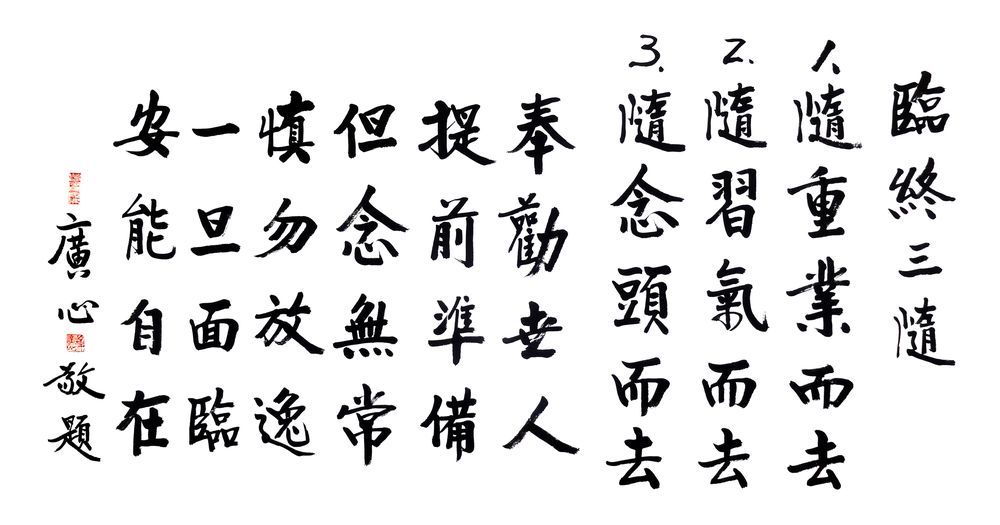 臨終三隨
1.隨重業而去
2.隨習氣而去
3.隨念頭而去
奉勸世人
提前準備
但念無常
慎勿放逸
一旦面臨
安能自在
廣心敬題